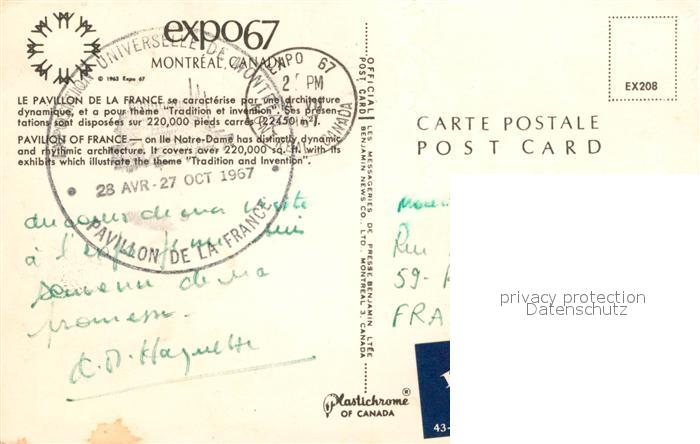 expo67
MONTRÉAL, CANADA
© 1963 Expo 67
LE PAVILLON DE LA FRANCE se caractérise par une architecture
dynamique, et a pour thème "Tradition et invention". Ses présen-
tations sont disposées sur 220,000 pieds carrés (22450 m²).
PAVILION OF FRANCE — on Ile Notre-Dame has distinctly dynamic
and rhythmic architecture. It covers over 220,000 sq. ft. with its
exhibits which illustrate the theme "Tradition and Invention".
UNIVERSELLE DE
28 AVR-27 OCT 1967
PAVILLON DE LA FRANCE
EXPO 67
PM
CANADA
au cours de ma visite
à l'expo
souvenir de ma
promesse.
OFFICIAL POST CARD
LES MESSAGERIES DE PRESSE BENJAMIN LTÉE
BENJAMIN NEWS CO. LTD. MONTREAL 3, CANADA
Plastichrome®
OF CANADA
EX208
CARTE POSTALE
POST CARD
Rue
59-
FRA
privacy protection
Datenschutz
43-